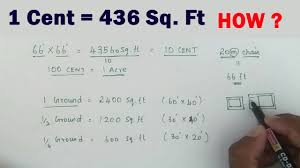 1 Cent = 436 Sq. Ft HOW ?
66' × 66' = 43560 sq.ft = 10 CENT
10
20 m chain
100 CENT = 1 Acre
66 ft
1 Ground = 2400 sq.ft (60' × 40')
1/2 Ground = 1200 sq.ft (30' × 40')
1/4 Ground = 600 sq.ft (30' × 20')